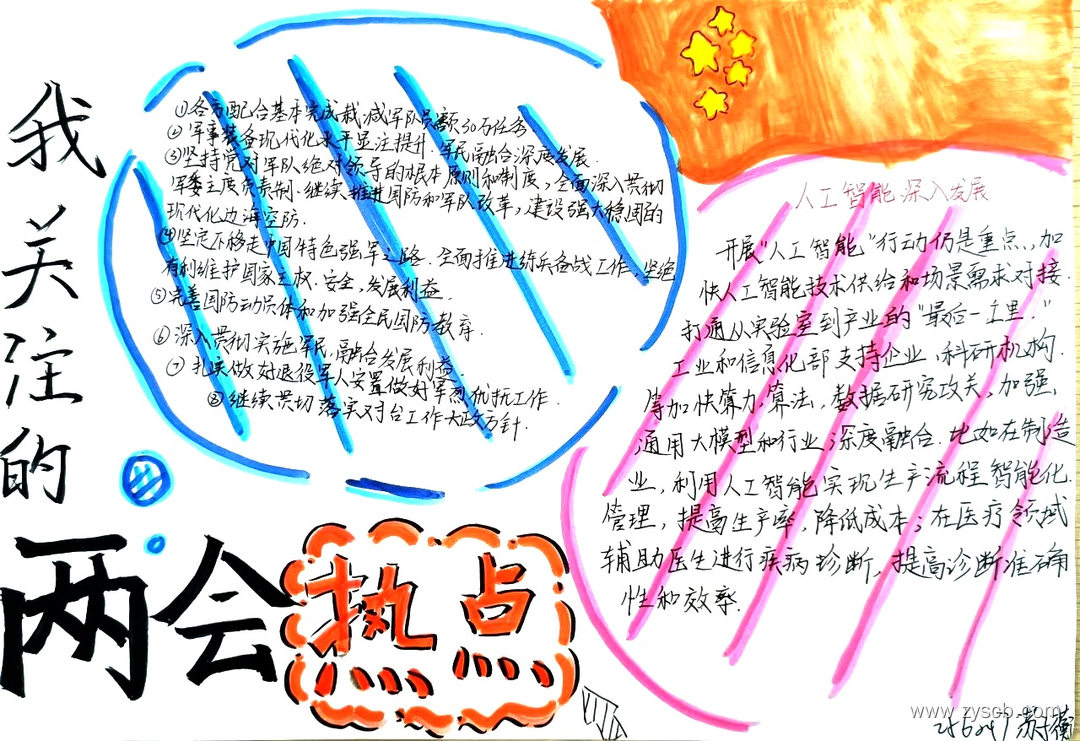 我关注的
两会
热点
①各方配合基本完成裁减军队员额30万任务
②军事装备现代化水平显注提升.军民融合深度发展.
③坚持党对军队绝对领导的根本原则和制度,全面深入贯彻
军委主席负责制.继续推进国防和军队改革,建设强大稳固的
现代化边海空防.
④坚定不移走中国特色强军之路.全面推进练兵备战工作,坚绝
有利维护国家主权.安全,发展利益.
⑤完善国防动员体和加强全民国防教育.
⑥深入贯彻实施军民,融合发展利益.
⑦扎实做好退役军人安置做好军烈优抚工作.
⑧继续贯切落实对台工作大政方针.
人工智能深入发展
开展"人工智能"行动仍是重点,加
快人工智能技术供给和场景需求对接.
打通从实验室到产业的"最后一工里."
工业和信息化部支持企业,科研机构.
等加快算力,算法,数据研究攻关,加强,
通用大模型和行业;深度融合.比如在制造
业,利用人工智能实现生产流程智能化.
管理,提高生产率,降低成本;在医疗领域
辅助医生进行疾病诊断,提高诊断准确
性和效率.
www.zyscb.com